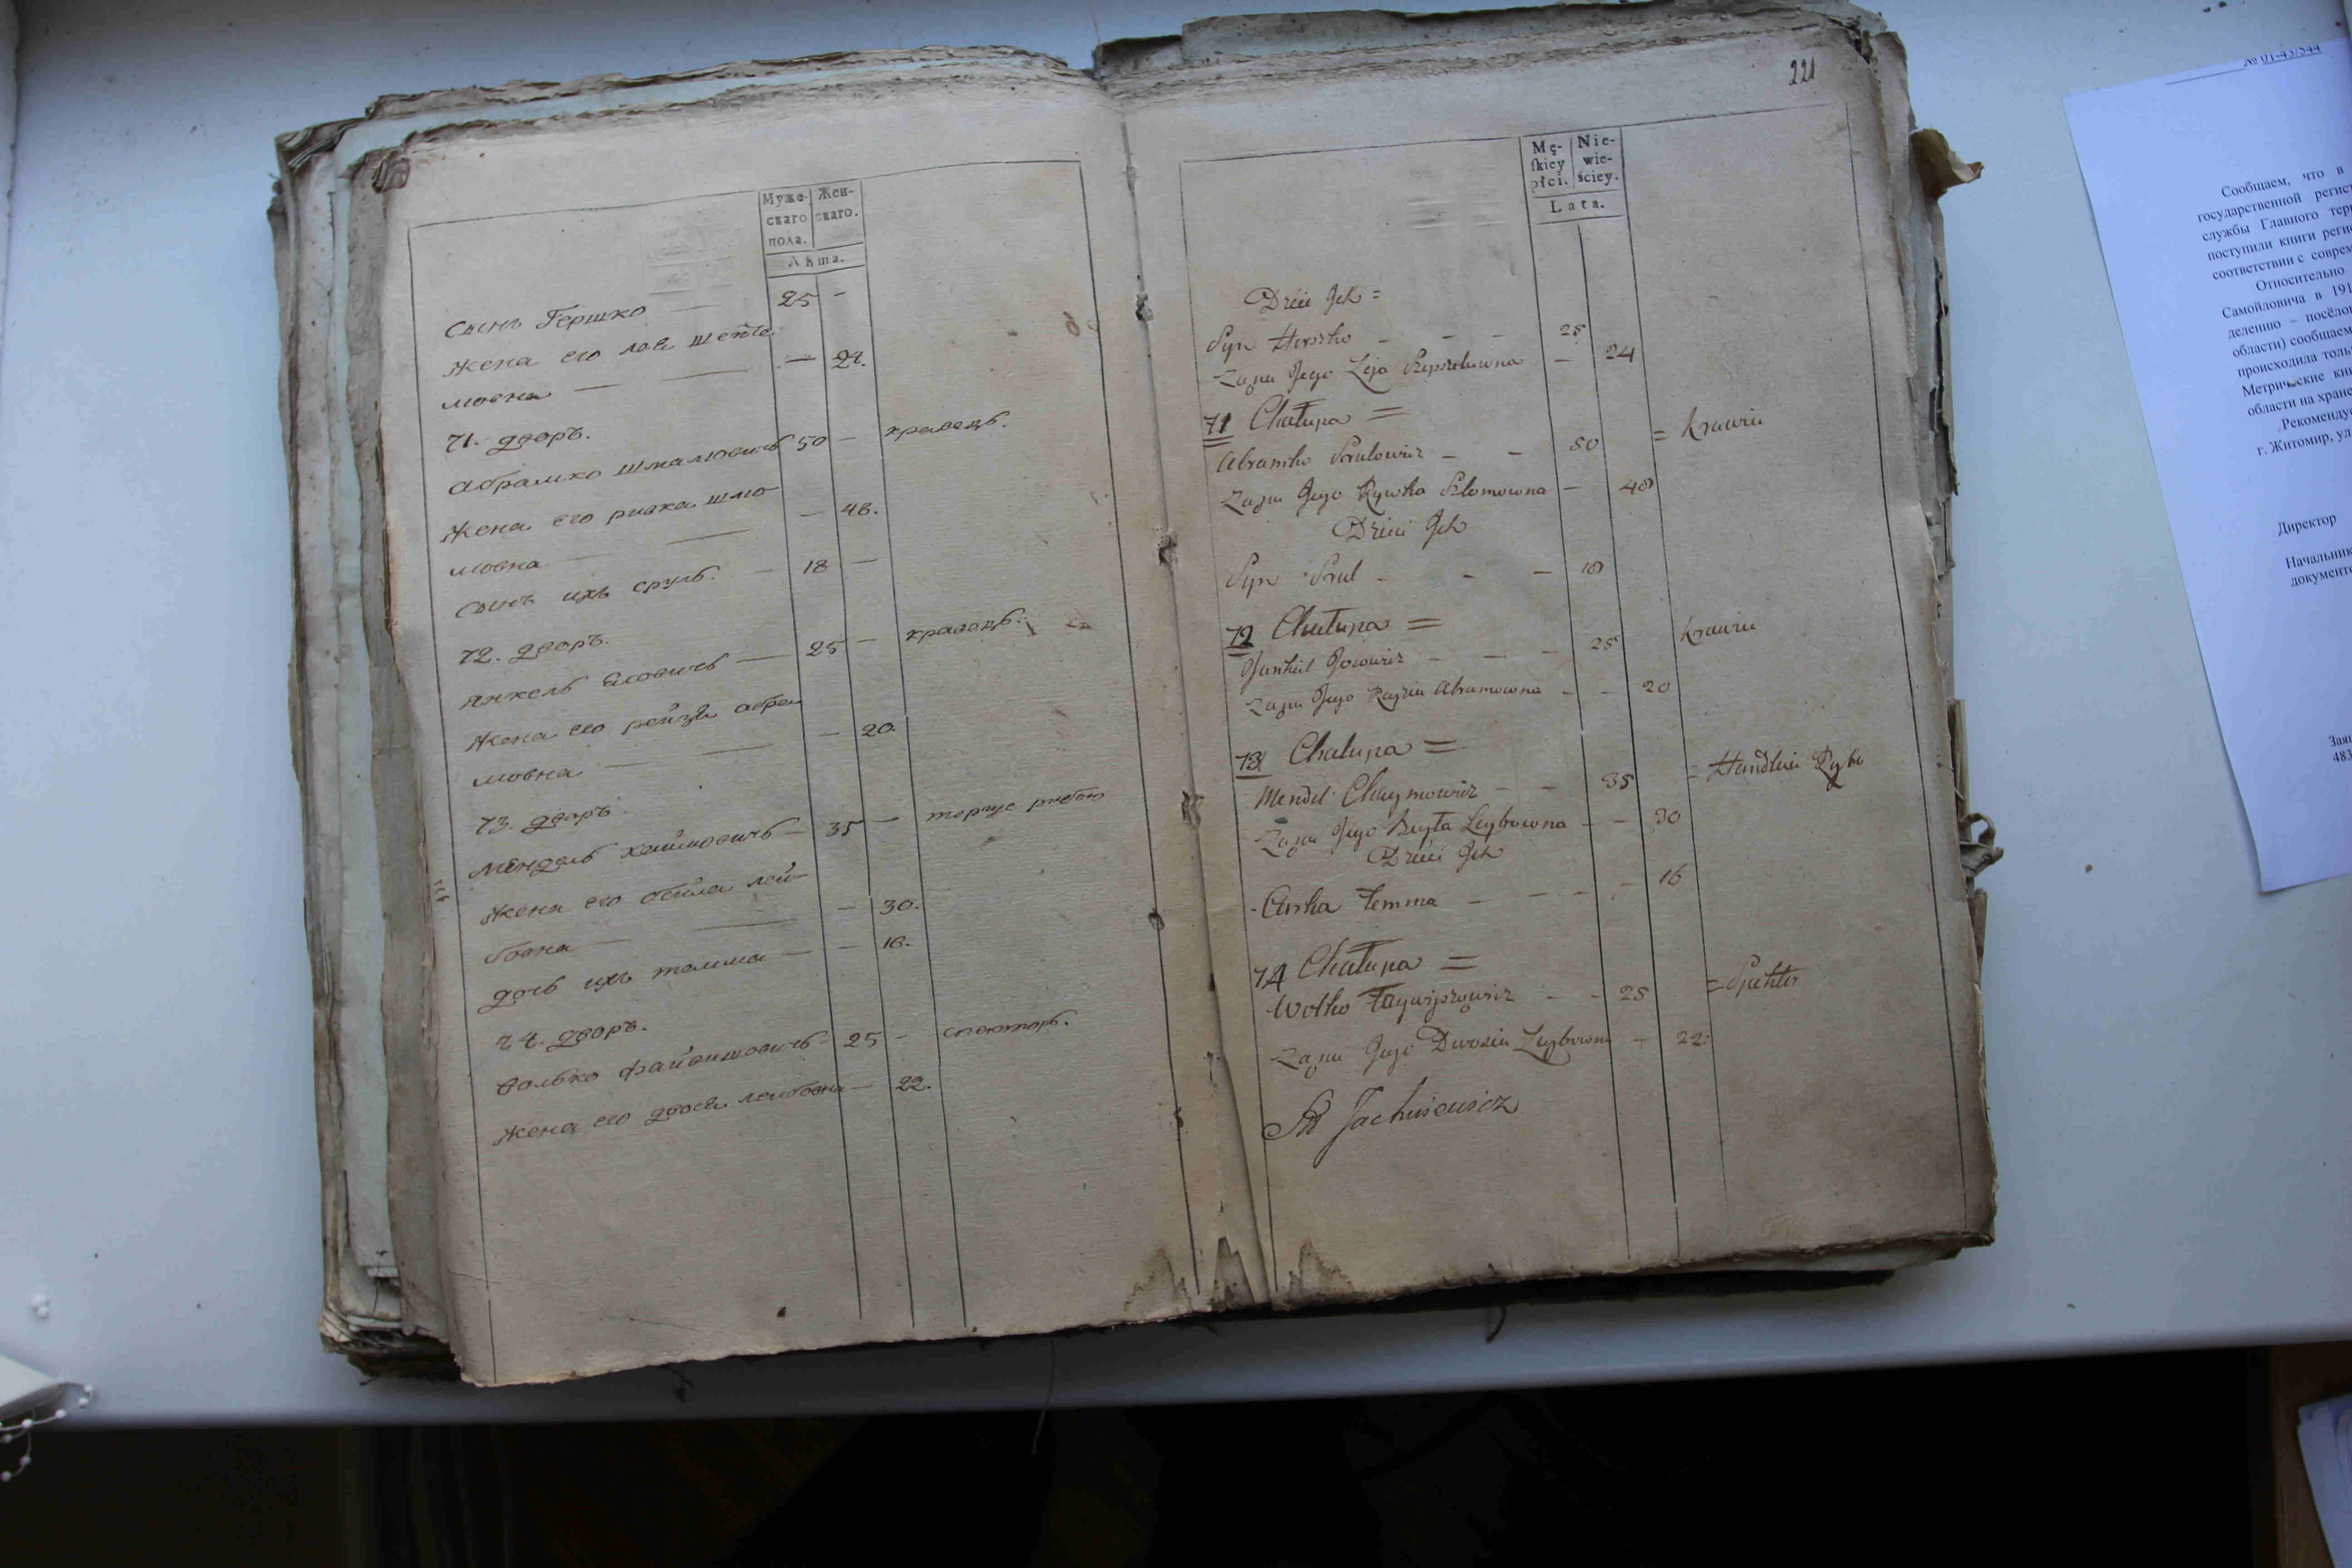 Муже-
скаго
пола.
Жен-
скаго.
Лѣта.
сынъ Гершко — 25 —
жена его лея шепше
мовна — — — 24.
71. дворъ.
абрамко шмалювичь 50 — кравець.
жена его ривка шлю
мовна — — — 48.
сынъ ихъ сруль. — 18 —
72. дворъ.
янкель Іісовичь — 25 — кравець.
жена его рейзя абра
мовна — — — 20.
73. дворъ.
мендель хаимовичь — 35 — торгує рибою
жена его бейла лей-
бовна — — — 30.
дочь ихъ темма — — 16.
74. дворъ.
волько файвишовичь 25 — спекторъ.
жена его двося лейбовна — 22.
221
Mę-
skiey
płci.
Nie-
wie-
ściey.
Lata.
Dzieci Ich =
Syn Herszko - - - 25
Zona Jego Leja - 24
71 Chałupa =
Abramko Srulowicz - - 50 = Krawiec
Zona Jego Rywka Szlomowna - 48
Dzieci Ich
Syn Srul - - - 18
72 Chałupa =
Jankiel Josiowicz - - - 25 Krawiec
Zona Jego Rayzia Abramowna - - 20
73 Chałupa =
Mendel Chaymowicz - - 35 = Handluie Rybą
Zona Jego Beyła Leybowna - - 30
Dzieci Ich
Curka Temma - - - - 16
74 Chałupa =
Wolko Faywiszowicz - - 25 = Spektor
Zona Jego Dwosia Leybowna - 22:
Jachimowicz
№ 01-43/544
Сообщаем, что в
государственной регис
службы Главного тер
поступили книги реги
соответствии с соврем
Относительно
Самойловича в 191
делению – посёло
области) сообщаем
происходила толь
Метрические кни
области на хране
Рекоменду
г. Житомир, ул
Директор
Начальник
документо
483